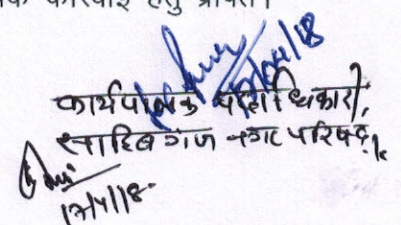 कारवाई हेतु प्रेषित।
/04/18
कार्यपालक पदाधिकारी,
साहिबगंज नगर परिषद्
17/4/18